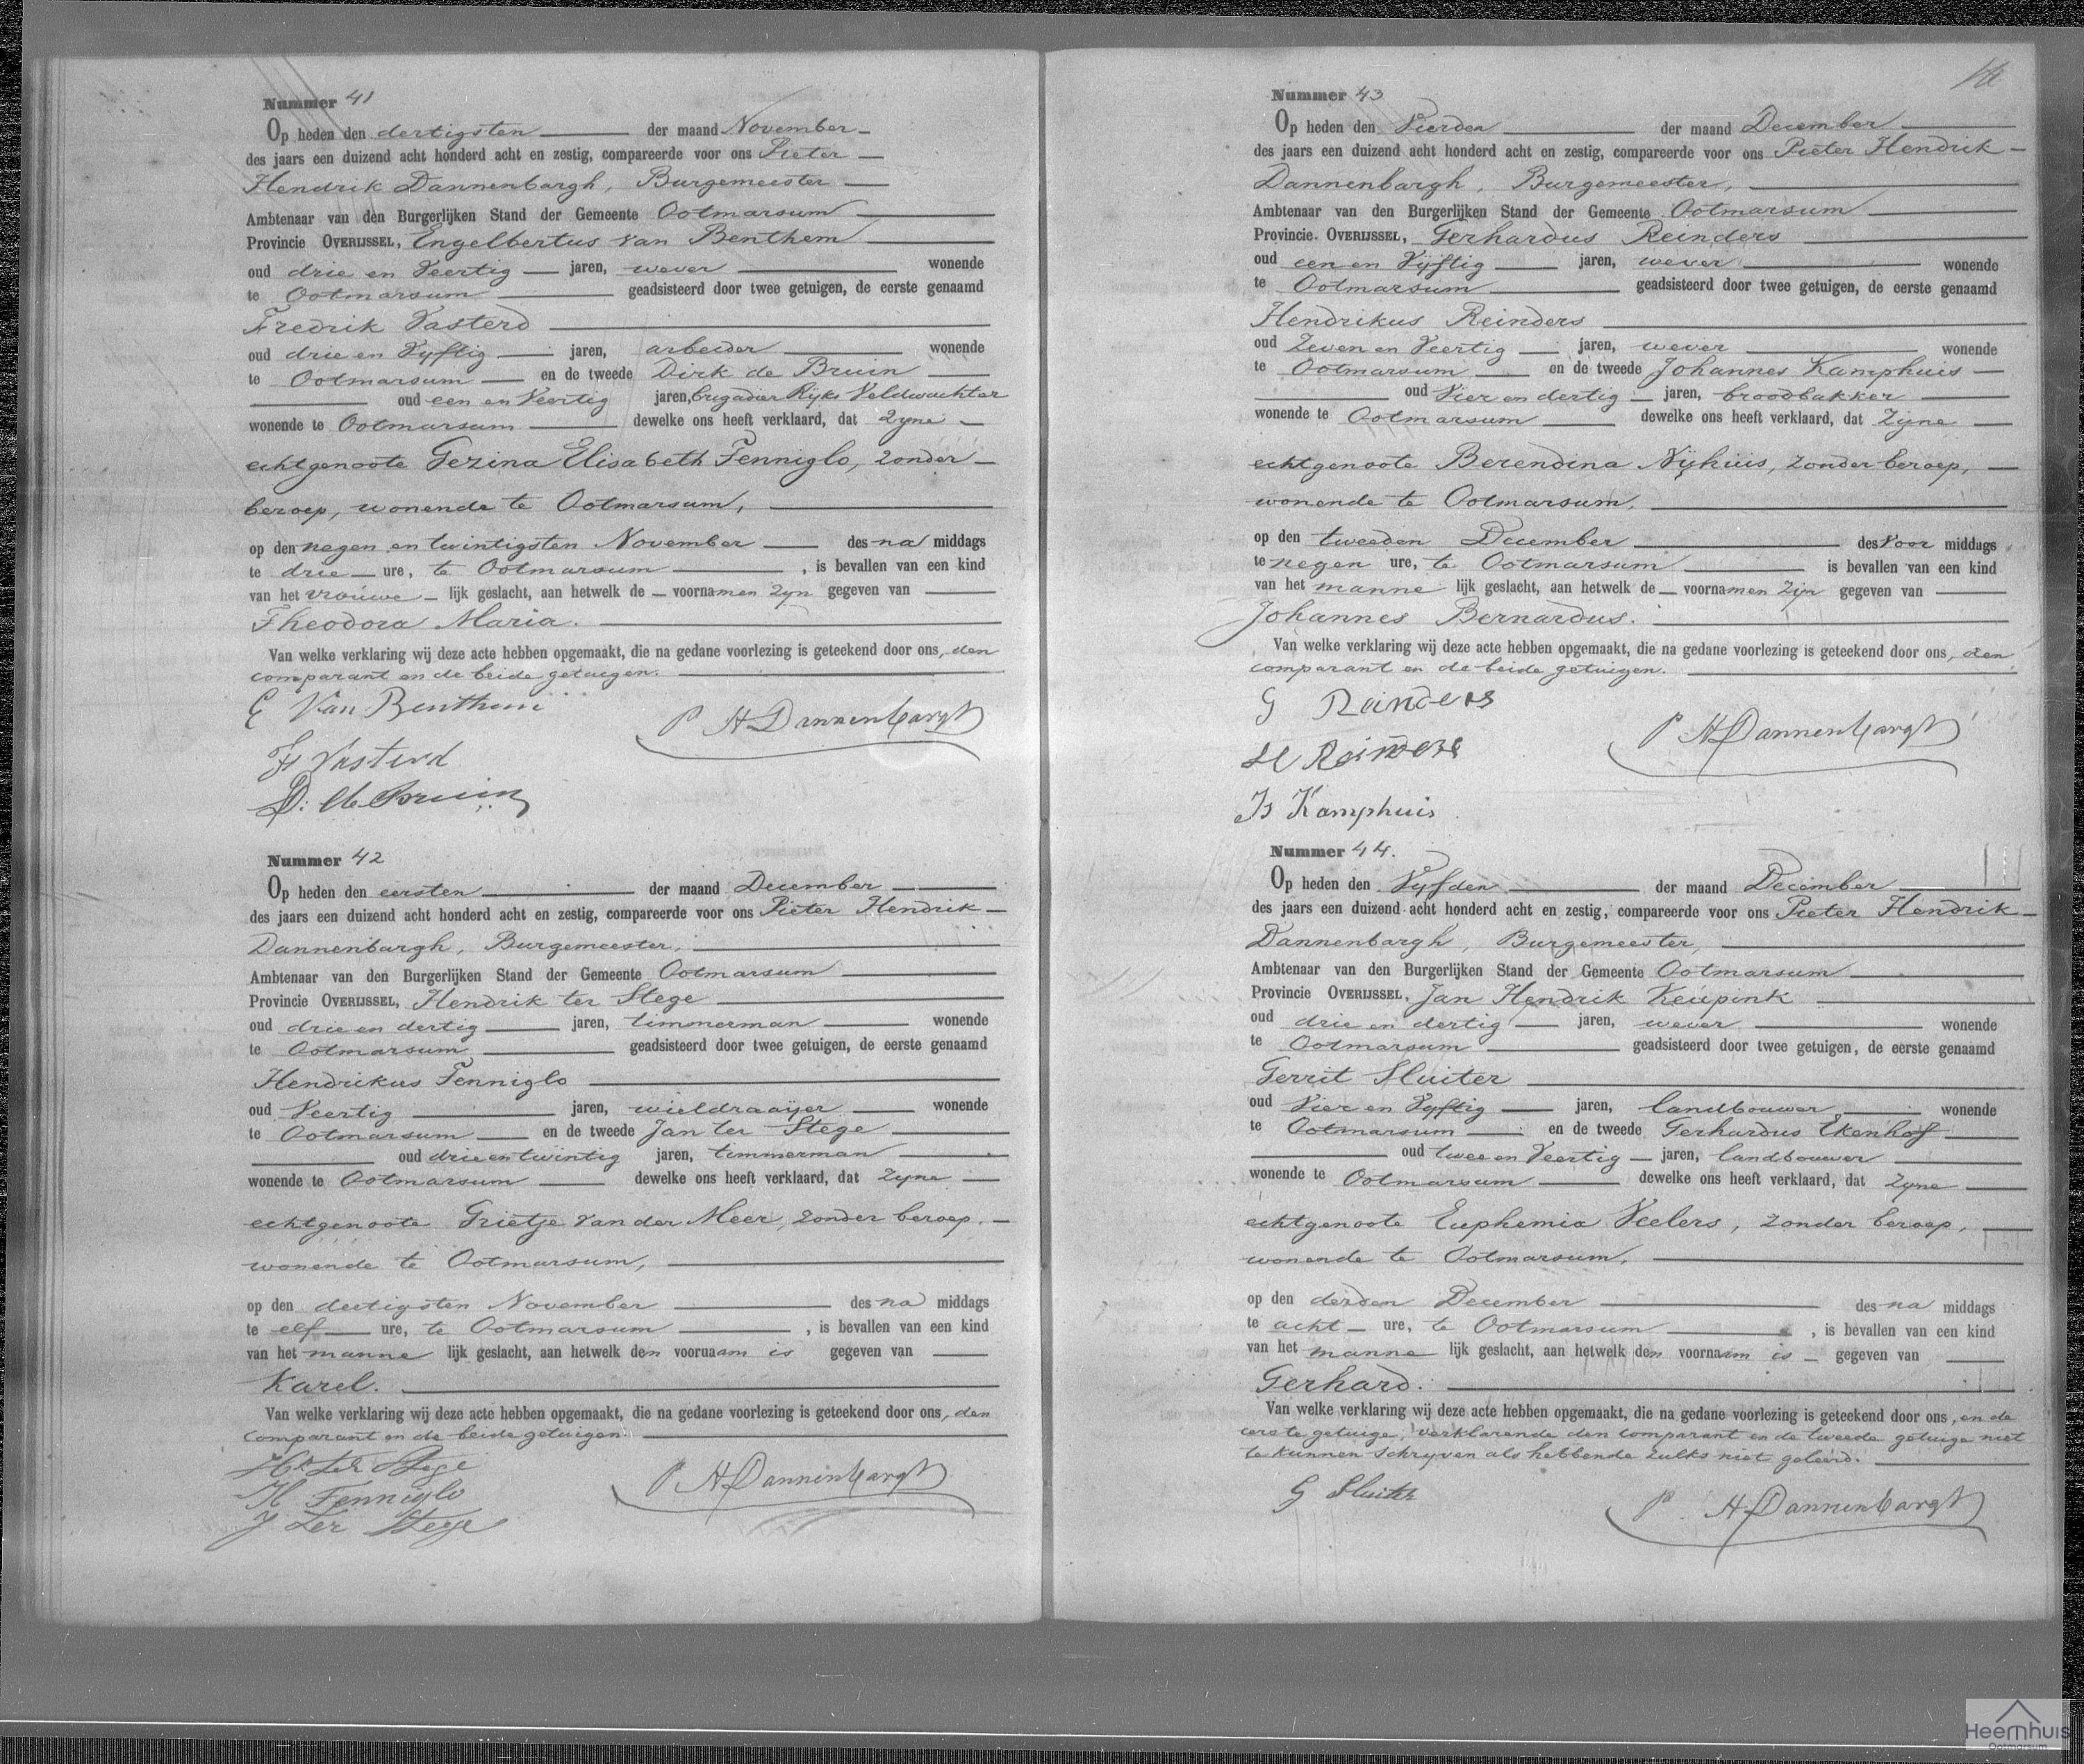 Nummer 41
Op heden den dertigsten der maand November
des jaars een duizend acht honderd acht en zestig, compareerde voor ons Pieter
Hendrik Dannenbargh, Burgemeester
Ambtenaar van den Burgerlijken Stand der Gemeente Ootmarsum
Provincie OVERIJSSEL, Engelbertus van Benthem
oud drie en Veertig jaren, wever wonende
te Ootmarsum geadsisteerd door twee getuigen, de eerste genaamd
Fredrik Vasterd
oud drie en Vyftig jaren, arbeider wonende
te Ootmarsum en de tweede Dirk de Bruin
oud een en Veertig jaren, brigadier Ryks Veldwachter
wonende te Ootmarsum dewelke ons heeft verklaard, dat Zyne
echtgenoote Gezina Elisabeth Fenniglo, zonder
beroep, wonende te Ootmarsum,
op den negen en twintigsten November des na middags
te drie ure, te Ootmarsum, is bevallen van een kind
van het vrouwe lijk geslacht, aan hetwelk de voornamen Zyn gegeven van
Theodora Maria.
Van welke verklaring wij deze acte hebben opgemaakt, die na gedane voorlezing is geteekend door ons, den
comparant en de beide getuigen.
E Van Benthem
P H Dannenbargh
F Vasterd
D: de Bruin
Nummer 42
Op heden den eersten der maand December
des jaars een duizend acht honderd acht en zestig, compareerde voor ons Pieter Hendrik
Dannenbargh, Burgemeester,
Ambtenaar van den Burgerlijken Stand der Gemeente Ootmarsum
Provincie OVERIJSSEL, Hendrik ter Stege
oud drie en dertig jaren, timmerman wonende
te Ootmarsum geadsisteerd door twee getuigen, de eerste genaamd
Hendrikus Fenniglo
oud Veertig jaren, wieldraaijer wonende
te Ootmarsum en de tweede Jan ter Stege
oud drie en twintig jaren, timmerman
wonende te Ootmarsum dewelke ons heeft verklaard, dat Zyne
echtgenoote Grietje van der Meer, zonder beroep,
wonende te Ootmarsum,
op den dertigsten November des na middags
te elf ure, te Ootmarsum, is bevallen van een kind
van het manne lijk geslacht, aan hetwelk den voornaam is gegeven van
Karel.
Van welke verklaring wij deze acte hebben opgemaakt, die na gedane voorlezing is geteekend door ons, den
comparant en de beide getuigen.
Hk ter Stege
P H Dannenbargh
H Fenniglo
J ter Stege
Nummer 43
Op heden den Vierden der maand December
des jaars een duizend acht honderd acht en zestig, compareerde voor ons Pieter Hendrik
Dannenbargh, Burgemeester,
Ambtenaar van den Burgerlijken Stand der Gemeente Ootmarsum
Provincie OVERIJSSEL, Gerhardus Reinders
oud een en Vijftig jaren, wever wonende
te Ootmarsum geadsisteerd door twee getuigen, de eerste genaamd
Hendrikus Reinders
oud Zeven en Veertig jaren, wever wonende
te Ootmarsum en de tweede Johannes Kamphuis
oud Vier en dertig jaren, broodbakker
wonende te Ootmarsum dewelke ons heeft verklaard, dat Zijne
echtgenoote Berendina Nijhuis, zonder beroep,
wonende te Ootmarsum,
op den tweeden December des voor middags
te negen ure, te Ootmarsum is bevallen van een kind
van het manne lijk geslacht, aan hetwelk de voornamen Zijn gegeven van
Johannes Bernardus.
Van welke verklaring wij deze acte hebben opgemaakt, die na gedane voorlezing is geteekend door ons, den
comparant en de beide getuigen.
G Reinders
P H Dannenbargh
H Reinders
Js Kamphuis
Nummer 44.
Op heden den Vyfden der maand December
des jaars een duizend acht honderd acht en zestig, compareerde voor ons Pieter Hendrik
Dannenbargh, Burgemeester,
Ambtenaar van den Burgerlijken Stand der Gemeente Ootmarsum
Provincie OVERIJSSEL, Jan Hendrik Keupink
oud drie en dertig jaren, wever wonende
te Ootmarsum geadsisteerd door twee getuigen, de eerste genaamd
Gerrit Sluiter
oud Vier en Vyftig jaren, landbouwer wonende
te Ootmarsum en de tweede Gerhardus Ekenhof
oud twee en Veertig jaren, landbouwer
wonende te Ootmarsum dewelke ons heeft verklaard, dat Zyne
echtgenoote Euphemia Veelers, zonder beroep,
wonende te Ootmarsum,
op den derden December des na middags
te acht ure, te Ootmarsum, is bevallen van een kind
van het manne lijk geslacht, aan hetwelk den voornaam is gegeven van
Gerhard.
Van welke verklaring wij deze acte hebben opgemaakt, die na gedane voorlezing is geteekend door ons, en de
eerste getuige, verklarende den comparant en de tweede getuige niet
te kunnen schryven als hebbende zulks niet geleerd.
G Sluiter
P. H Dannenbargh
Heemhuis
Ootmarsum